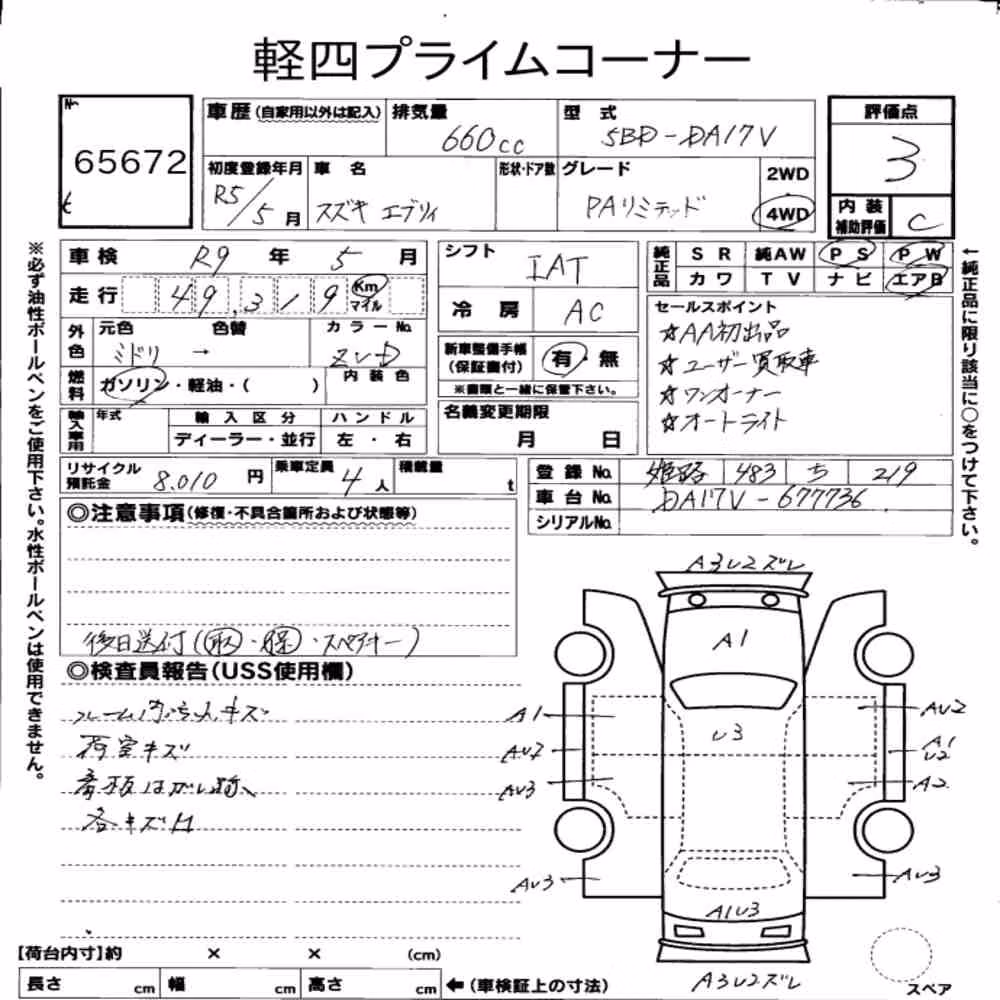 軽四プライムコーナー
№
65672
t
車歴(自家用以外は記入)
排気量 660cc
型式 5BD-DA17V
評価点 3
初度登録年月 R5/5月
車名 スズキ エブリィ
形状・ドア数
グレード PAリミテッド
2WD
4WD
内装補助評価 C
車検 R9年5月
走行 49,319 Km マイル
外色 元色 ミドリ → 色替
カラーNo. ZVD
燃料 ガソリン・軽油・( )
内装色
輸入車用 年式
輸入区分 ディーラー・並行
ハンドル 左・右
シフト IAT
冷房 AC
新車整備手帳(保証書付) 有・無
※書類と一緒に保管下さい。
名義変更期限 月 日
純正品 SR 純AW PS PW
カワ TV ナビ エアB
セールスポイント
☆AA初出品
☆ユーザー買取車
☆ワンオーナー
☆オートライト
リサイクル預託金 8,010円
乗車定員 4人
積載量 t
登録No. 姫路 483 ち 219
車台No. DA17V-677736
シリアルNo.
※必ず油性ボールペンをご使用下さい。水性ボールペンは使用できません。
←純正品に限り該当に○をつけて下さい。
◎注意事項(修復・不具合箇所および状態等)
後日送付(取・保・スペアキー)
◎検査員報告(USS使用欄)
荷室キズ
各キズ凹
A3U2ズレ
A1
U3
A1
AU2
AU3
AU3
AU2
A1
U2
A2
AU3
A1U3
A3U2ズレ
スペア
【荷台内寸】約 × × (cm)
長さ cm 幅 cm 高さ cm ←(車検証上の寸法)